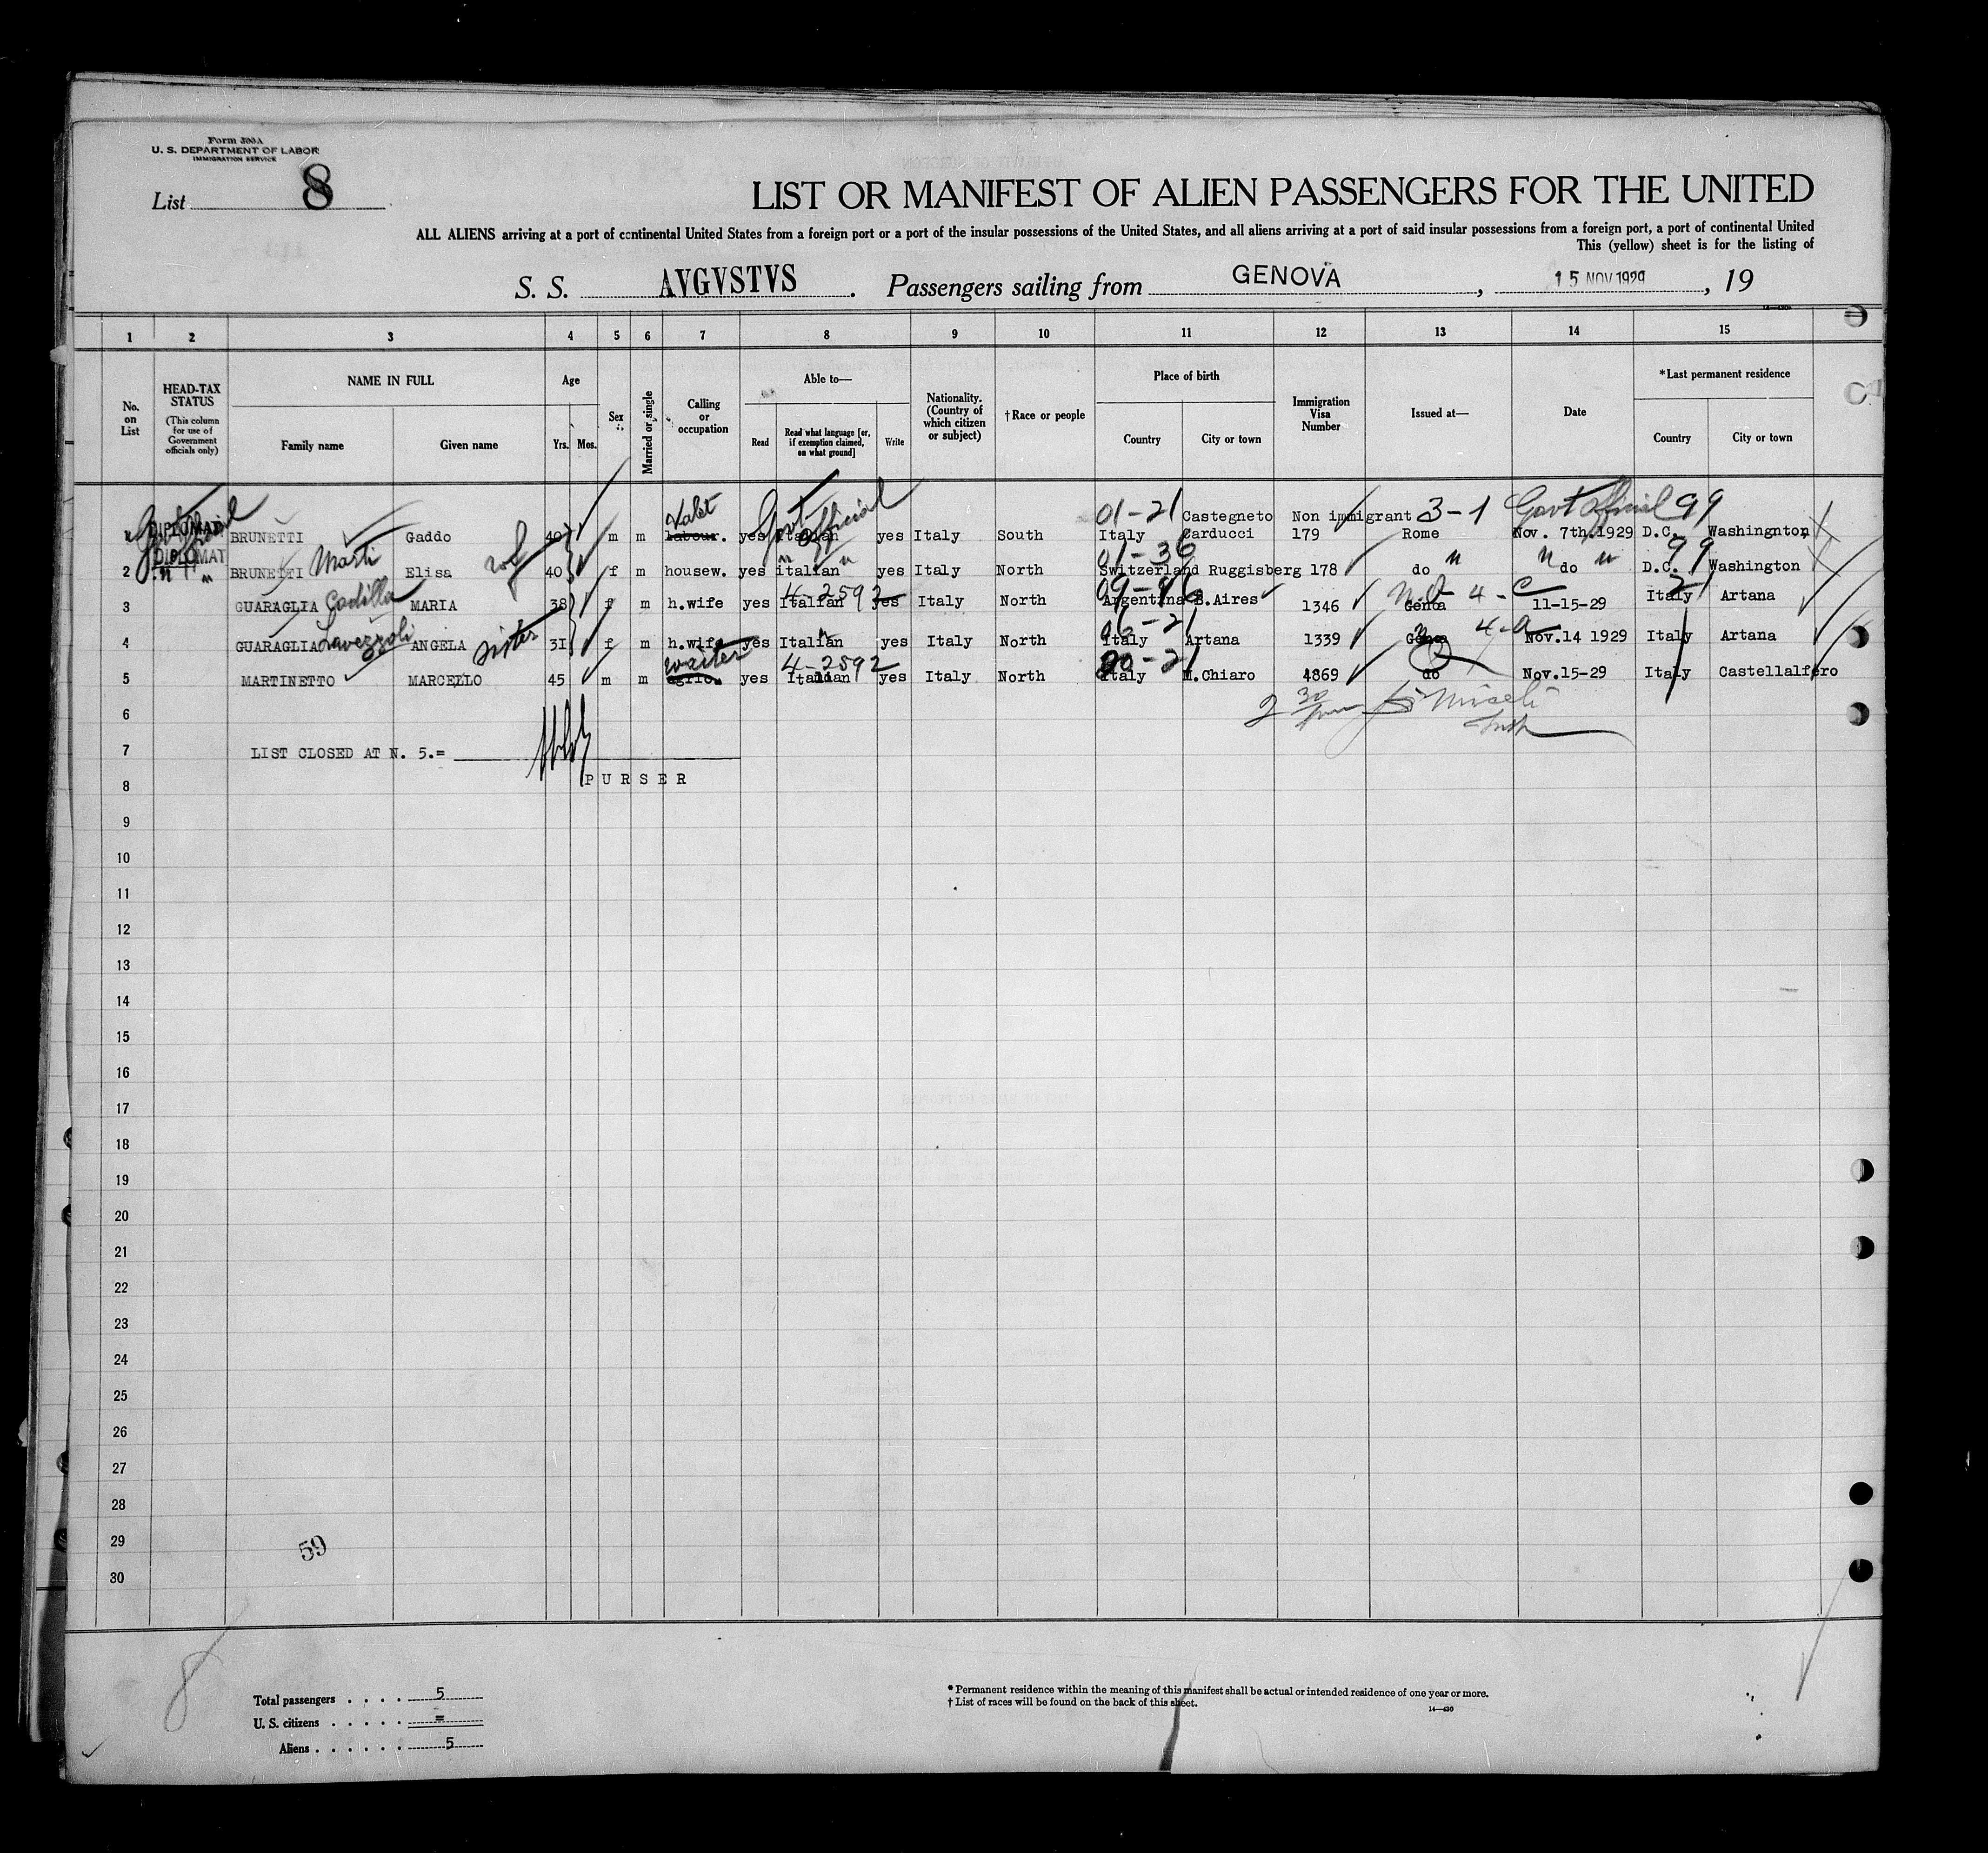 Form 500A
U. S. DEPARTMENT OF LABOR
IMMIGRATION SERVICE
List 8
LIST OR MANIFEST OF ALIEN PASSENGERS FOR THE UNITED
ALL ALIENS arriving at a port of continental United States from a foreign port or a port of the insular possessions of the United States, and all aliens arriving at a port of said insular possessions from a foreign port, a port of continental United
This (yellow) sheet is for the listing of
S. S. AVGVSTVS . Passengers sailing from GENOVA , 15 NOV 1929 , 19
14—430
1 2 3 4 5 6 7 8 9 10 11 12 13 14 15
No. on List
HEAD-TAX STATUS (This column for use of Government officials only)
NAME IN FULL
Family name Given name
Age
Yrs. Mos.
Sex
Married or single
Calling or occupation
Able to—
Read Read what language [or, if exemption claimed, on what ground] Write
Nationality. (Country of which citizen or subject)
†Race or people
Place of birth
Country City or town
Immigration Visa Number
Issued at—
Date
*Last permanent residence
Country City or town
Valet Govt official 01-21 Castegneto Non immigrant 3-1 Govt Official 99
1 DIPLOMAT BRUNETTI Gaddo 40 m m labour. yes Italian yes Italy South Italy Carducci 179 Rome Nov. 7th.1929 D.C. Washingnton
DIPLOMAT Marti wf " " 01-36 " " " 99
2 BRUNETTI Elisa 40 f m housew. yes italian yes Italy North Switzerland Ruggisberg 178 do do D.C. Washington
Codilla 4-2592 09-46 4-C 21
3 GUARAGLIA MARIA 38 f m h.wife yes Italian yes Italy North Argentina B.Aires 1346 Genoa 11-15-29 Italy Artana
Lavezzoli sister " 4-a
4 GUARAGLIA ANGELA 31 f m h.wife yes Italian yes Italy North Italy Artana 1339 Genoa Nov.14 1929 Italy Artana
waiter 4-2592
5 MARTINETTO MARCELLO 45 m m agric. yes Italian yes Italy North Italy M.Chiaro 4869 do Nov.15-29 Italy Castellalfero
6 2 30 pm
7 LIST CLOSED AT N. 5.=
PURSER
8
9
10
11
12
13
14
15
16
17
18
19
20
21
22
23
24
25
26
27
28
29 59
30
8
Total passengers . . . . 5
U. S. citizens . . . . . =
Aliens . . . . . . 5
* Permanent residence within the meaning of this manifest shall be actual or intended residence of one year or more.
† List of races will be found on the back of this sheet.
14—430